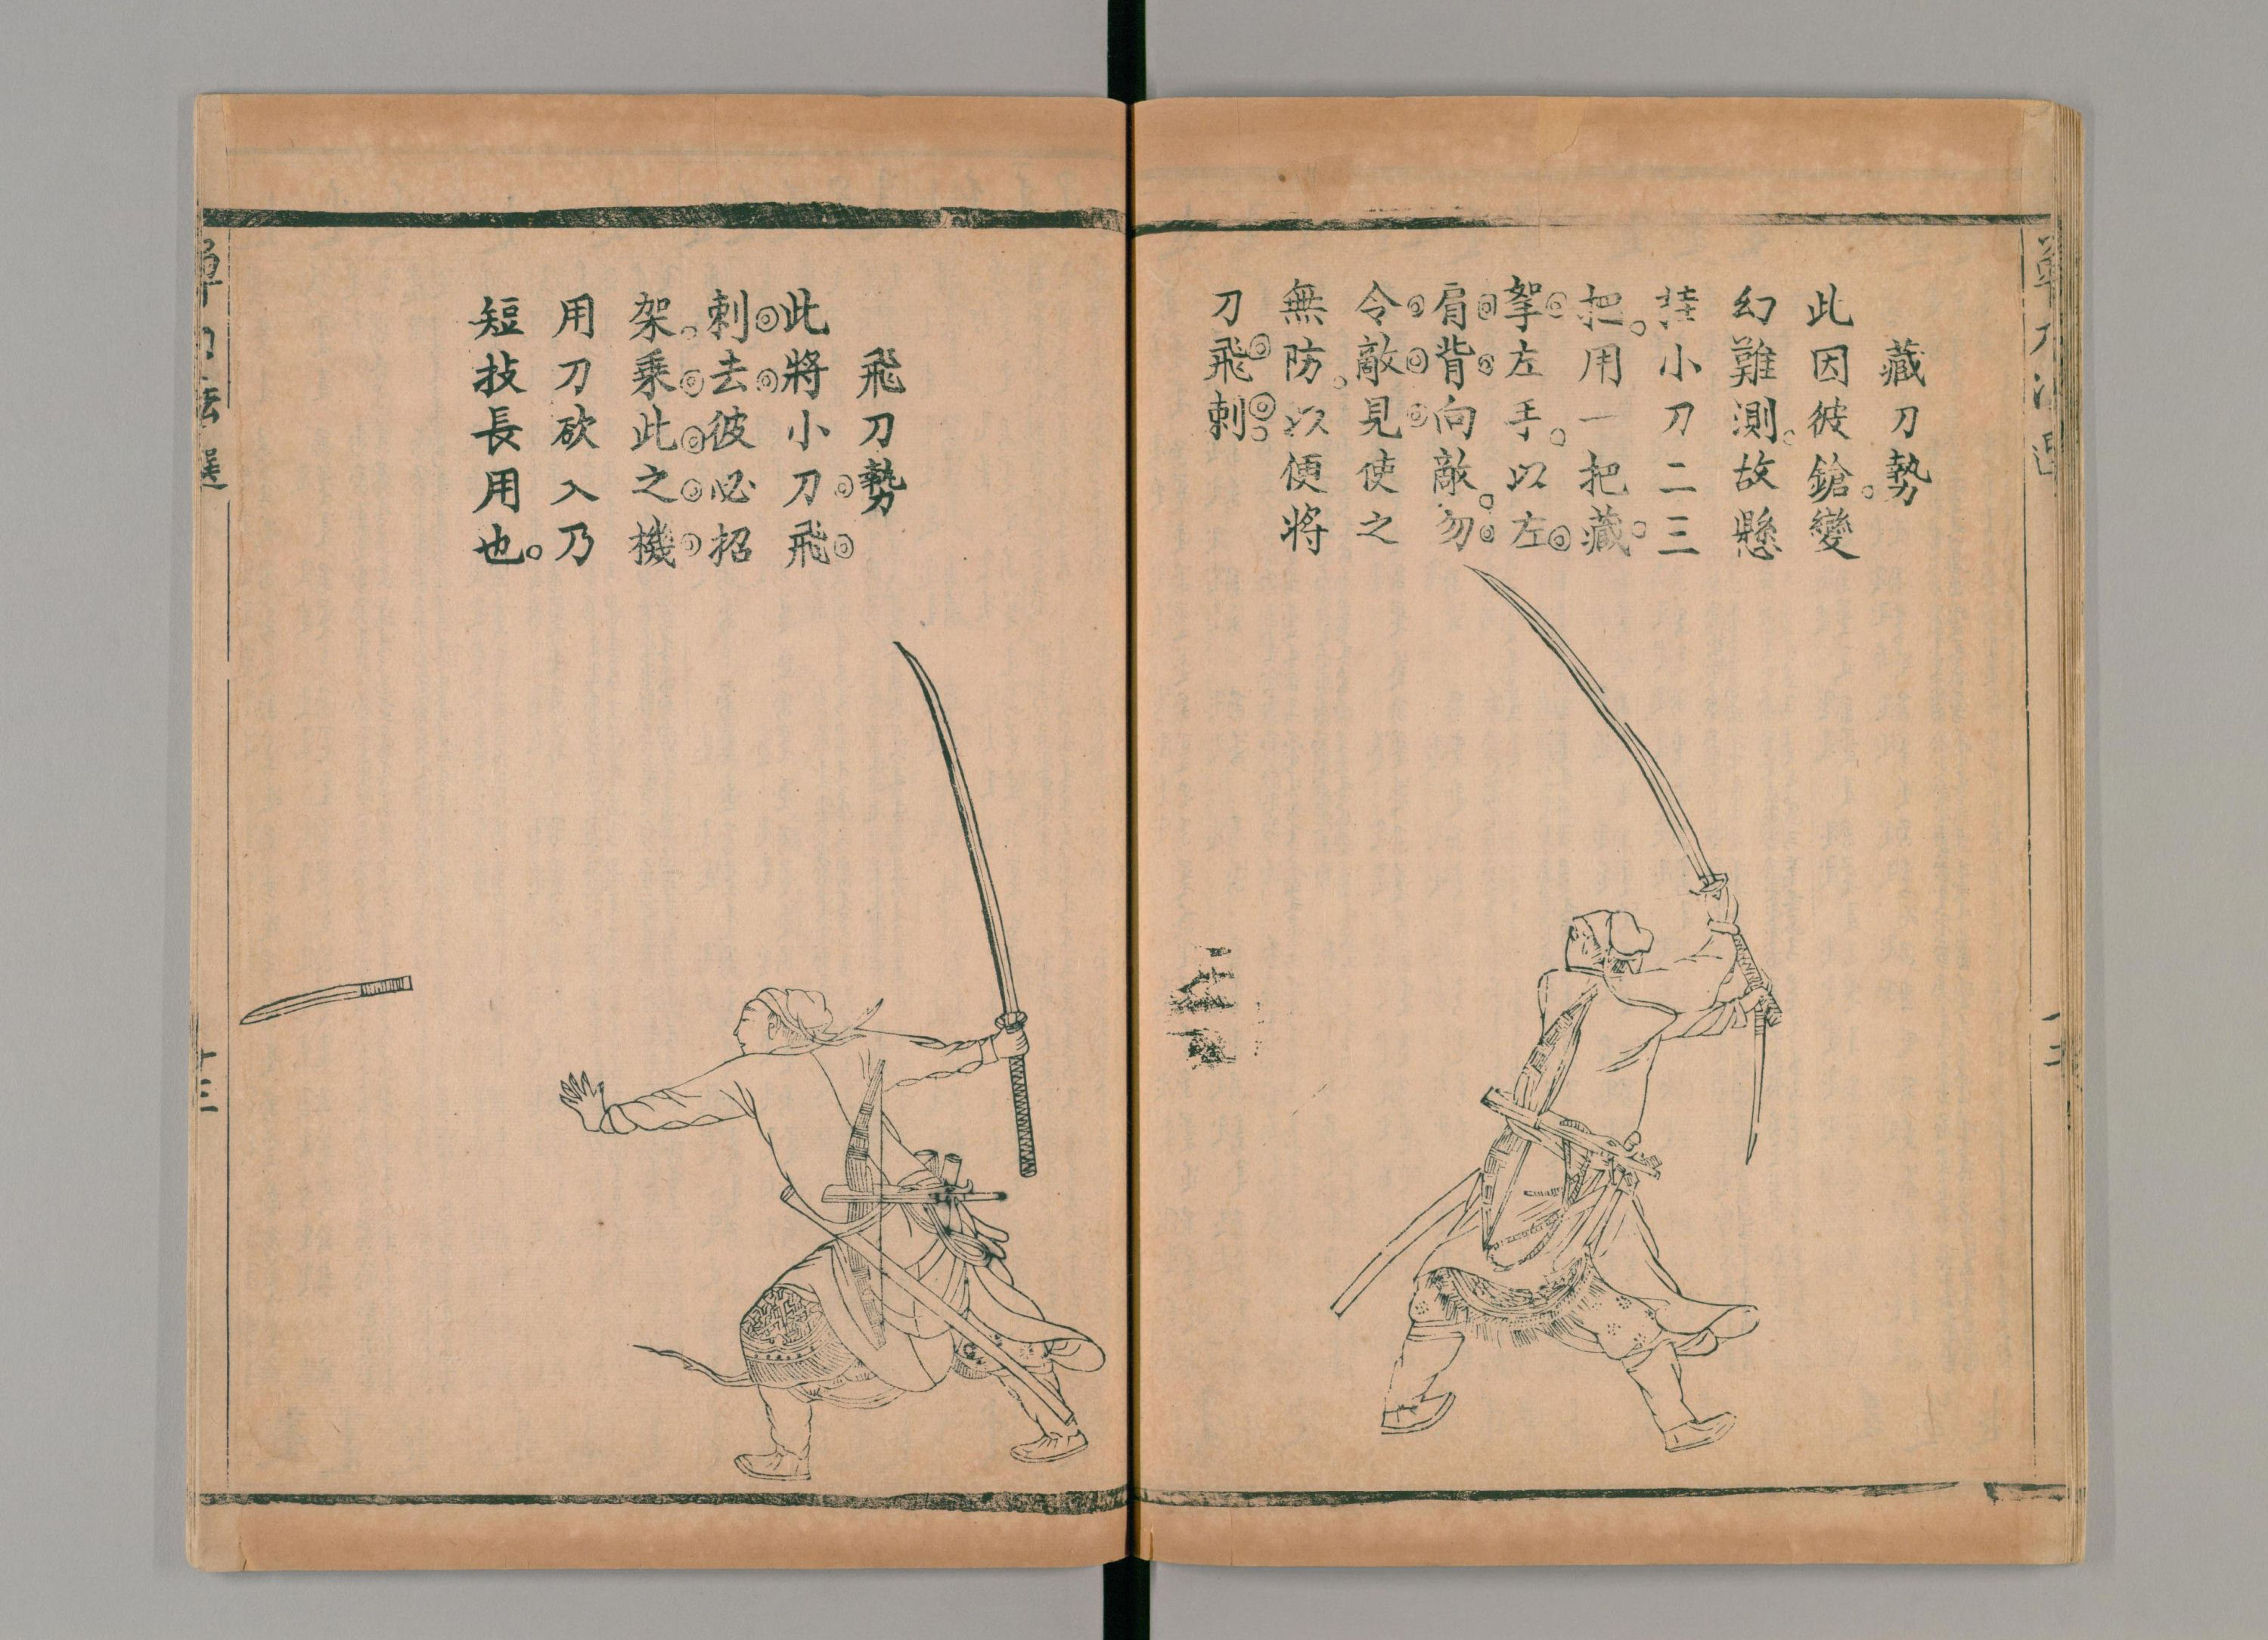 藏刀勢
此因彼鎗。變
幻難測。故懸
挂小刀二三
把。用一把藏
拏左手。以左
肩背向敵。勿
令敵見使之
無防。以便將
刀飛刺
飛刀勢
此將小刀飛
刺去彼必招
架。乘此之機
用刀砍入乃
短技長用也。
單刀法選
十三